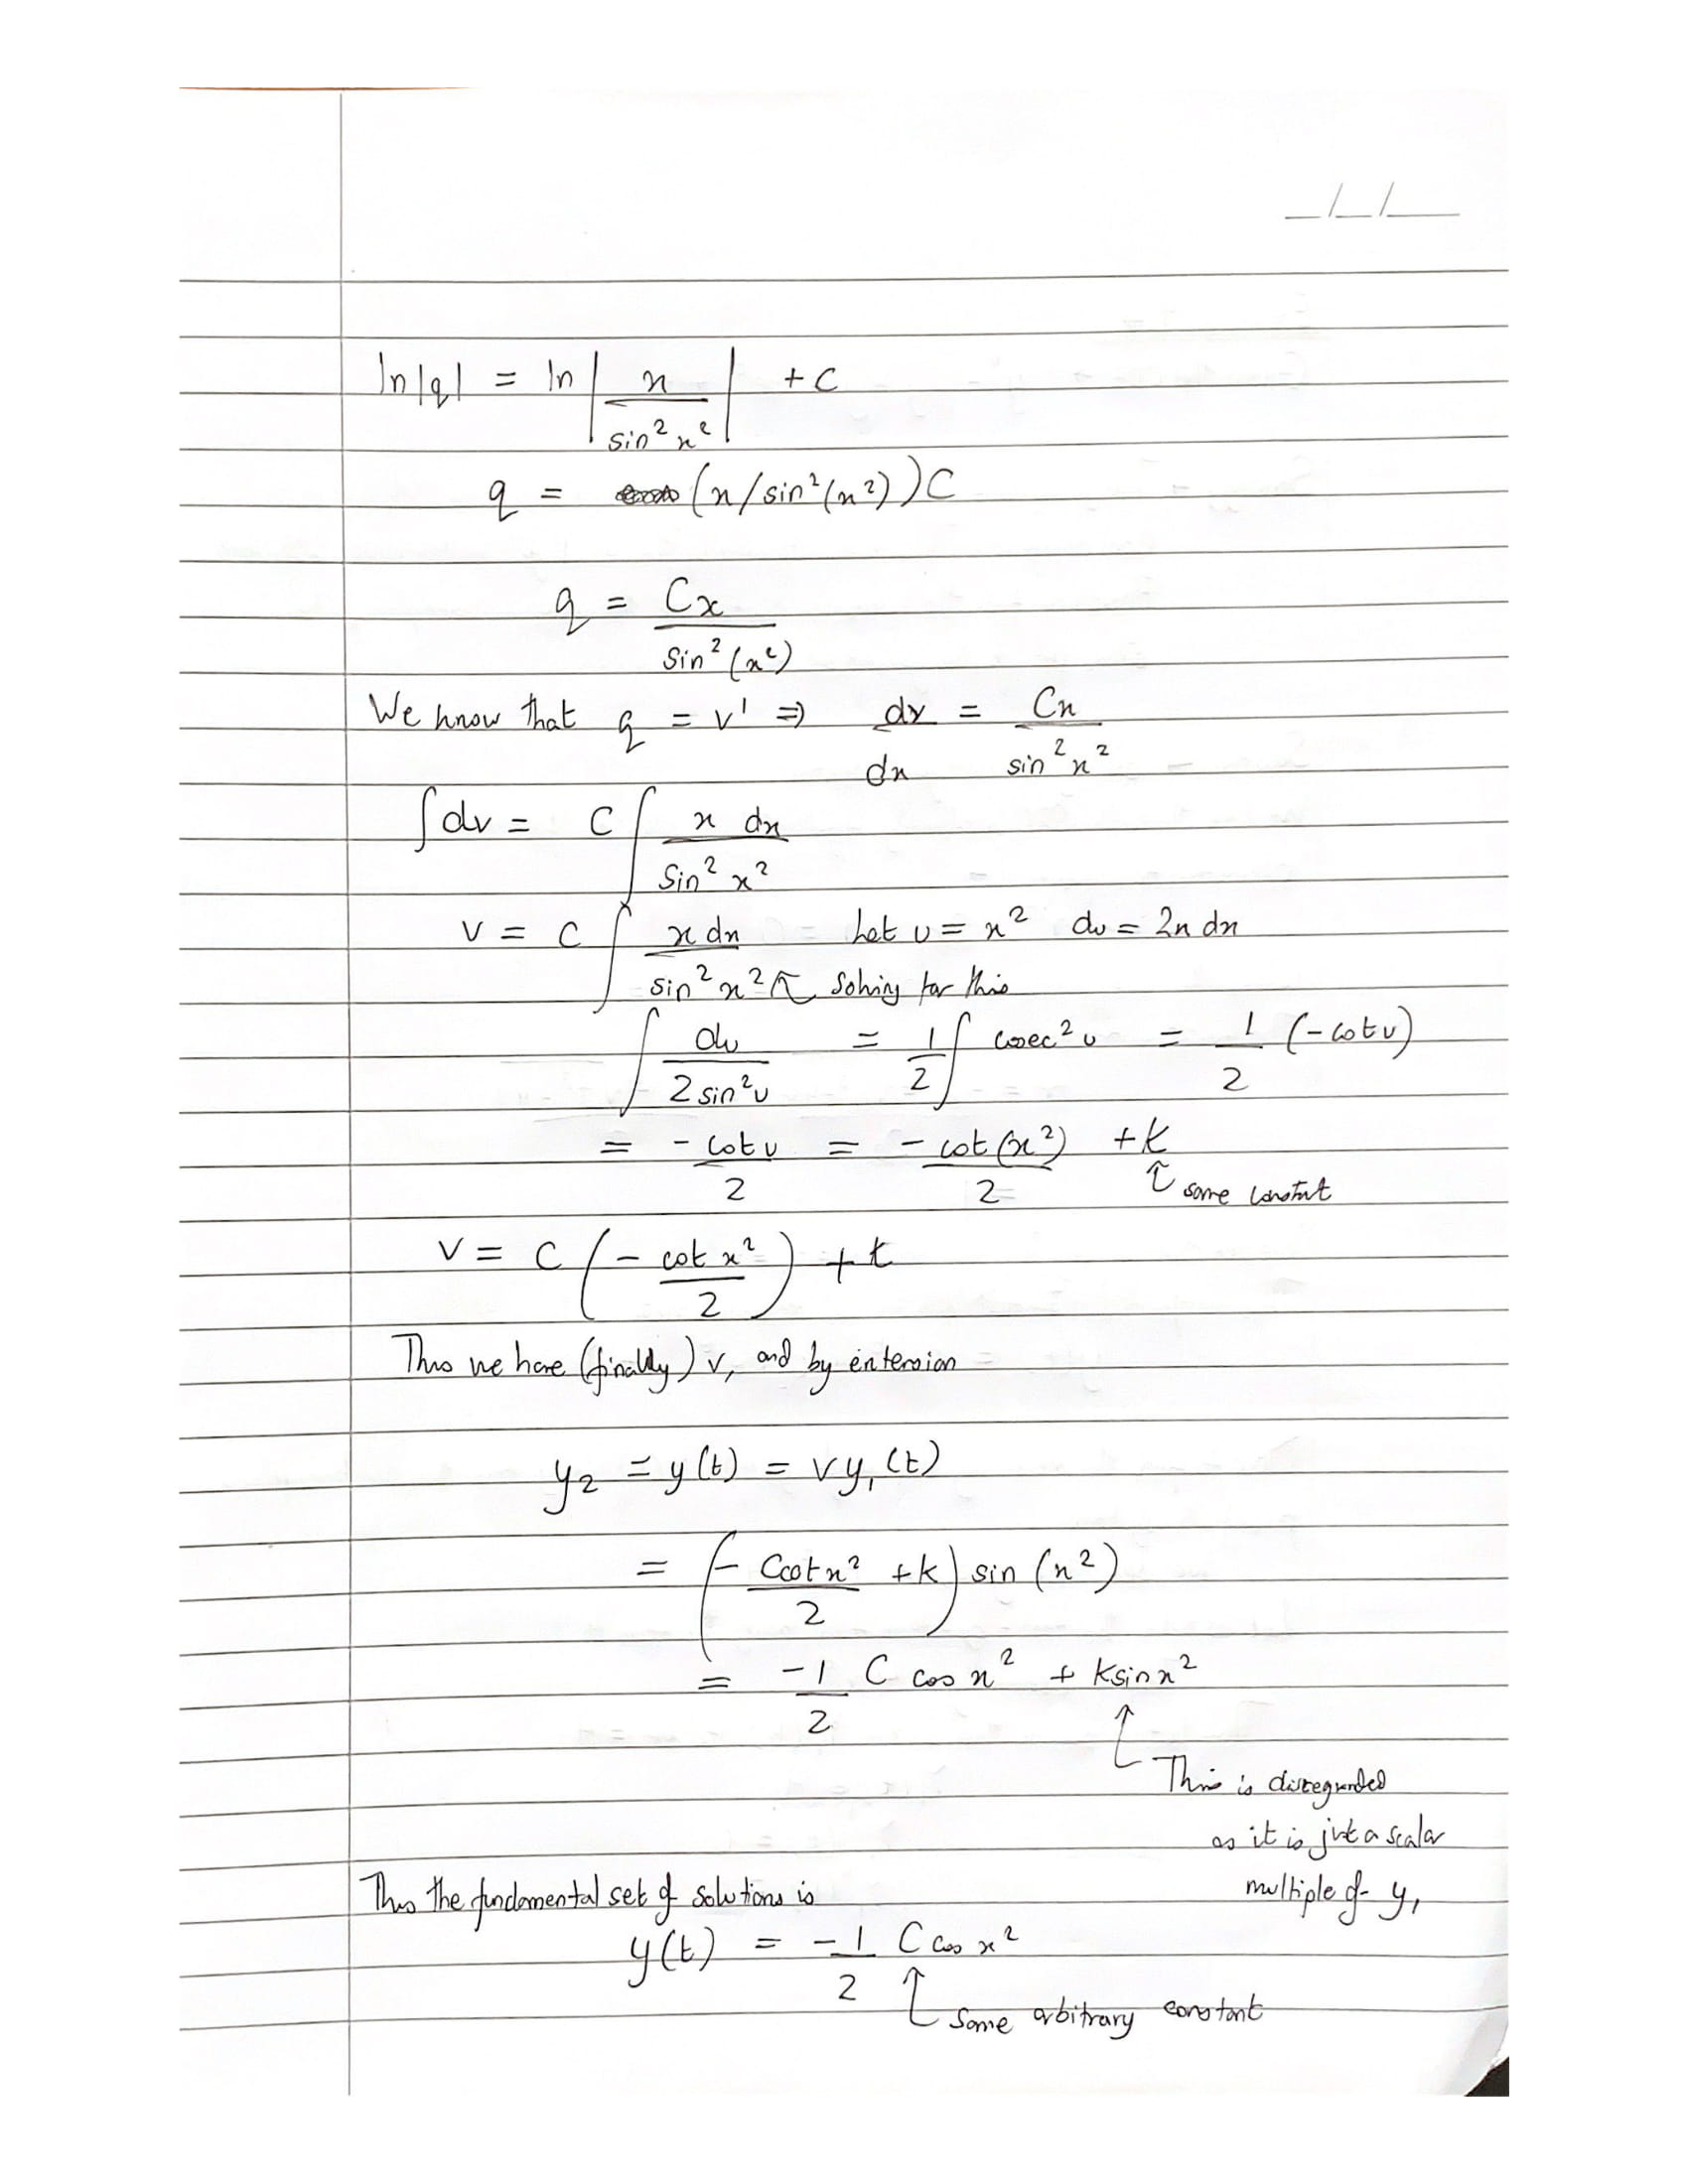 _/_/_
ln|q| = ln |x / sin² x²| + C
q = (x/sin²(x²))C
q = Cx / sin²(x²)
We know that q = v' ⇒ dv/dx = Cx / sin² x²
∫dv = C ∫ x dx / sin² x²
v = C ∫ x dx / sin² x² Let u = x² du = 2x dx
↖ Solving for this
∫ du / 2 sin² u = 1/2 ∫ cosec² u = 1/2 (-cot u)
= -cot u / 2 = -cot(x²) / 2 + k
↑ some constant
v = C (-cot x² / 2) + k
Thus we have (finally) v, and by extension
y₂ = y(t) = v y₁(t)
= (-C cot x² / 2 + k) sin(x²)
= -1/2 C cos x² + k sin x²
↑ This is disregarded
as it is just a scalar
multiple of y₁
Thus the fundamental set of solutions is
y(t) = -1/2 C cos x²
↑ Some arbitrary constant